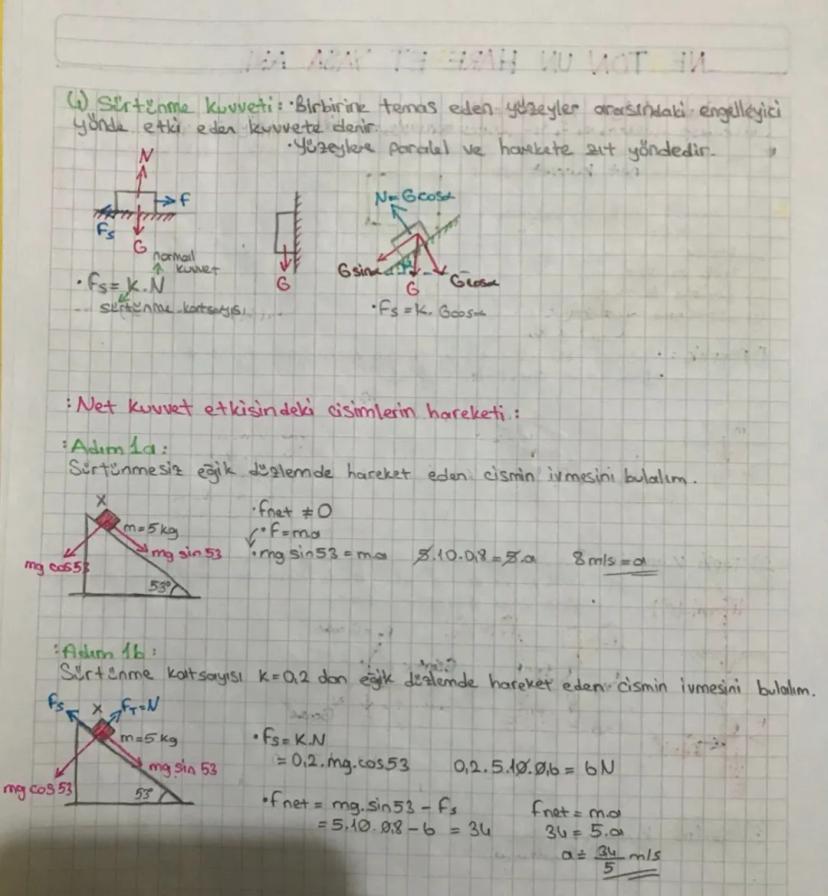 Sürtünme kuvveti: ·Birbirine temas eden yüzeyler arasındaki engelleyici
yönde etki eden kuvvete denir.
·Yüzeylere paralel ve harekete zıt yöndedir.
N
F
Fs
G
G
N=Gcosα
Gsinα
G
Gcosα
normal
kuvvet
·Fs=k.N
sürtünme katsayısı
·Fs=k.Gcosα
:Net kuvvet etkisindeki cisimlerin hareketi:
:Adım 1a:
Sürtünmesiz eğik düzlemde hareket eden cismin ivmesini bulalım.
X
m=5kg
mg sin53
mg cos53
53°
·fnet ≠0
·F=ma
·mg sin53=ma 5.10.0,8=5.a 8m/s=a
:Adım 1b:
Sürtünme katsayısı k=0,2 dan eğik düzlemde hareket eden cismin ivmesini bulalım.
Fs
X
FT=N
m=5kg
mg sin 53
mg cos 53
53°
·Fs=k.N
=0,2.mg.cos53 0,2.5.10.0,6=6N
·fnet=mg.sin53-fs
=5.10.0,8-6=34
fnet=m.a
34=5.a
a=34/5 m/s